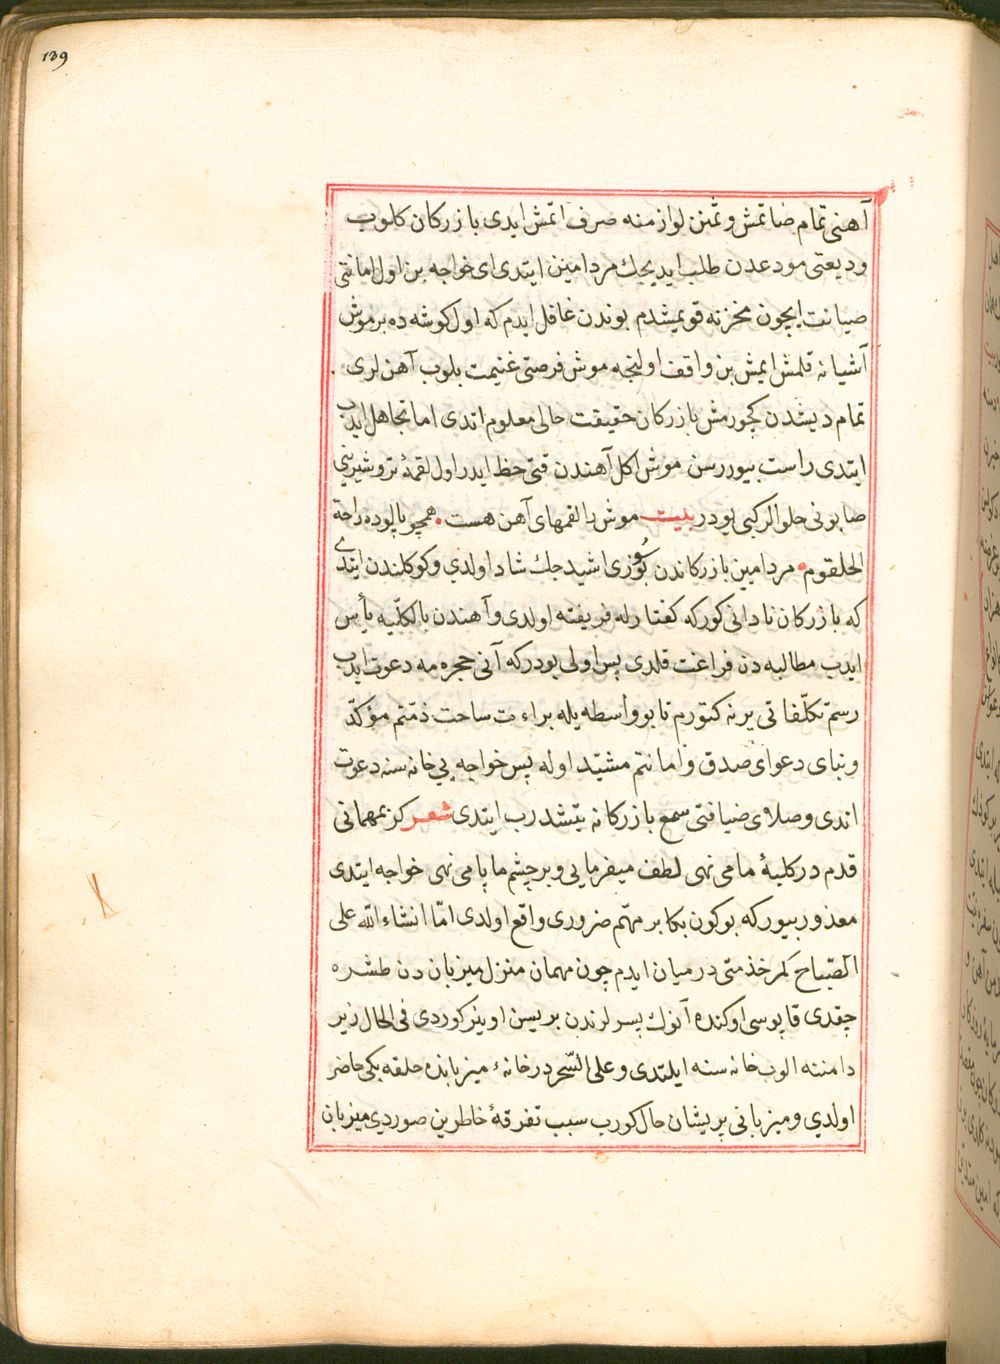 139
آهنی تمام صاتمش و ثمنن لوازمنه صرف اتمش ایدی بازرکان کلوب
ودیعتی مودعدن طلب ایدیجك مرد امین ایتدی ای خواجه بن اول امانتی
صیانت ایچون مخزنه قویمشدم بوندن غافل ایدم که اول کوشه ده بر موش
آشیانه قلمش ایمش بن واقف اولنجه موش فرصتی غنیمت بلوب آهن لری
تمام دیشدن کچورمش بازرکان حقیقت حالی معلوم اتدی اما تجاهل ایدب
ایتدی راست بیوررسن موش اکل آهندن قتی حظ ایدر اول لقمۀ تر و شیرینی
صابونی حلوالر کبی یودر بیت موش را لقمهای آهن هست همچو پالوده راحة
الحلقوم مرد امین بازرکاندن بو سوزی اشیدجك شاد اولدی و کوکلندن ایتدی
که بازرکان نادانی کورکه کفتارله فریفته اولدی و آهندن بالکلّیه یأس
ایدب مطالبه دن فراغت قلدی پس اولی بودرکه آنی حجره مه دعوت ایدب
رسم تکلّفاتی یرنه کتورم تا بو واسطه یله براءت ساحت ذمّتم مؤکّد
و بنای دعوای صدق و امانتم مشیّد اوله پس خواجه یی خانه سنه دعوت
اتدی و صلای ضیافتی سمع بازرکانه یتشدرب ایتدی شعر کر بمهمانی
قدم در کلبۀ ما می نهی لطف میفرمایی و بر چشم ما پا می نهی خواجه ایتدی
معذور بیورکه بوکون بکا بر مهّم ضروری واقع اولدی امّا انشاء الله علی
الصّباح کمر خذمتی در میان ایدم چون مهمان منزل میزبان دن طشره
چقدی قاپوسی اوکنده آنوك پسرلرندن بریسن اوینر کوردی فی الحال زیر
دامننه الوب خانه سنه ایلتدی و علی السّحر در خانهء میزبانده حلقه بکی حاضر
اولدی و میزبانی پریشان حال کورب سبب تفرقۀ خاطرین صوردی میزبان